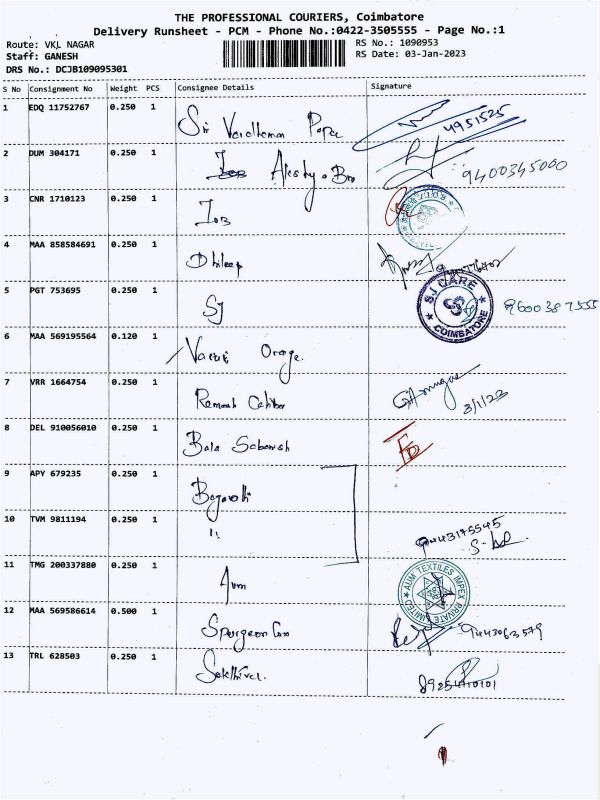 THE PROFESSIONAL COURIERS, Coimbatore
Delivery Runsheet - PCM - Phone No.:0422-3505555 - Page No.:1
Route: VKL NAGAR
RS No.: 1090953
Staff: GANESH
RS Date: 03-Jan-2023
DRS No.: DCJB109095301
S No Consignment No Weight PCS Consignee Details Signature
1 EDQ 11752767 0.250 1 Sri Vardhaman 4951525
2 DUM 304171 0.250 1 9400345000
3 CNR 1710123 0.250 1 IOB
4 MAA 858584691 0.250 1 Dhileep
5 PGT 753695 0.250 1 SJ SJ CARE COIMBATORE 9600387555
6 MAA 569195564 0.120 1 Orange.
7 VRR 1664754 0.250 1 Ramesh 3/1/23
8 DEL 910056010 0.250 1 Bala
9 APY 679235 0.250 1
10 TVM 9811194 0.250 1 "
11 TMG 200337880 0.250 1 Aum AUM TEXTILES IMPEX PRIVATE LIMITED
12 MAA 569586614 0.500 1 Spurgeon 9443063579
13 TRL 628503 0.250 1 Sakthivel.